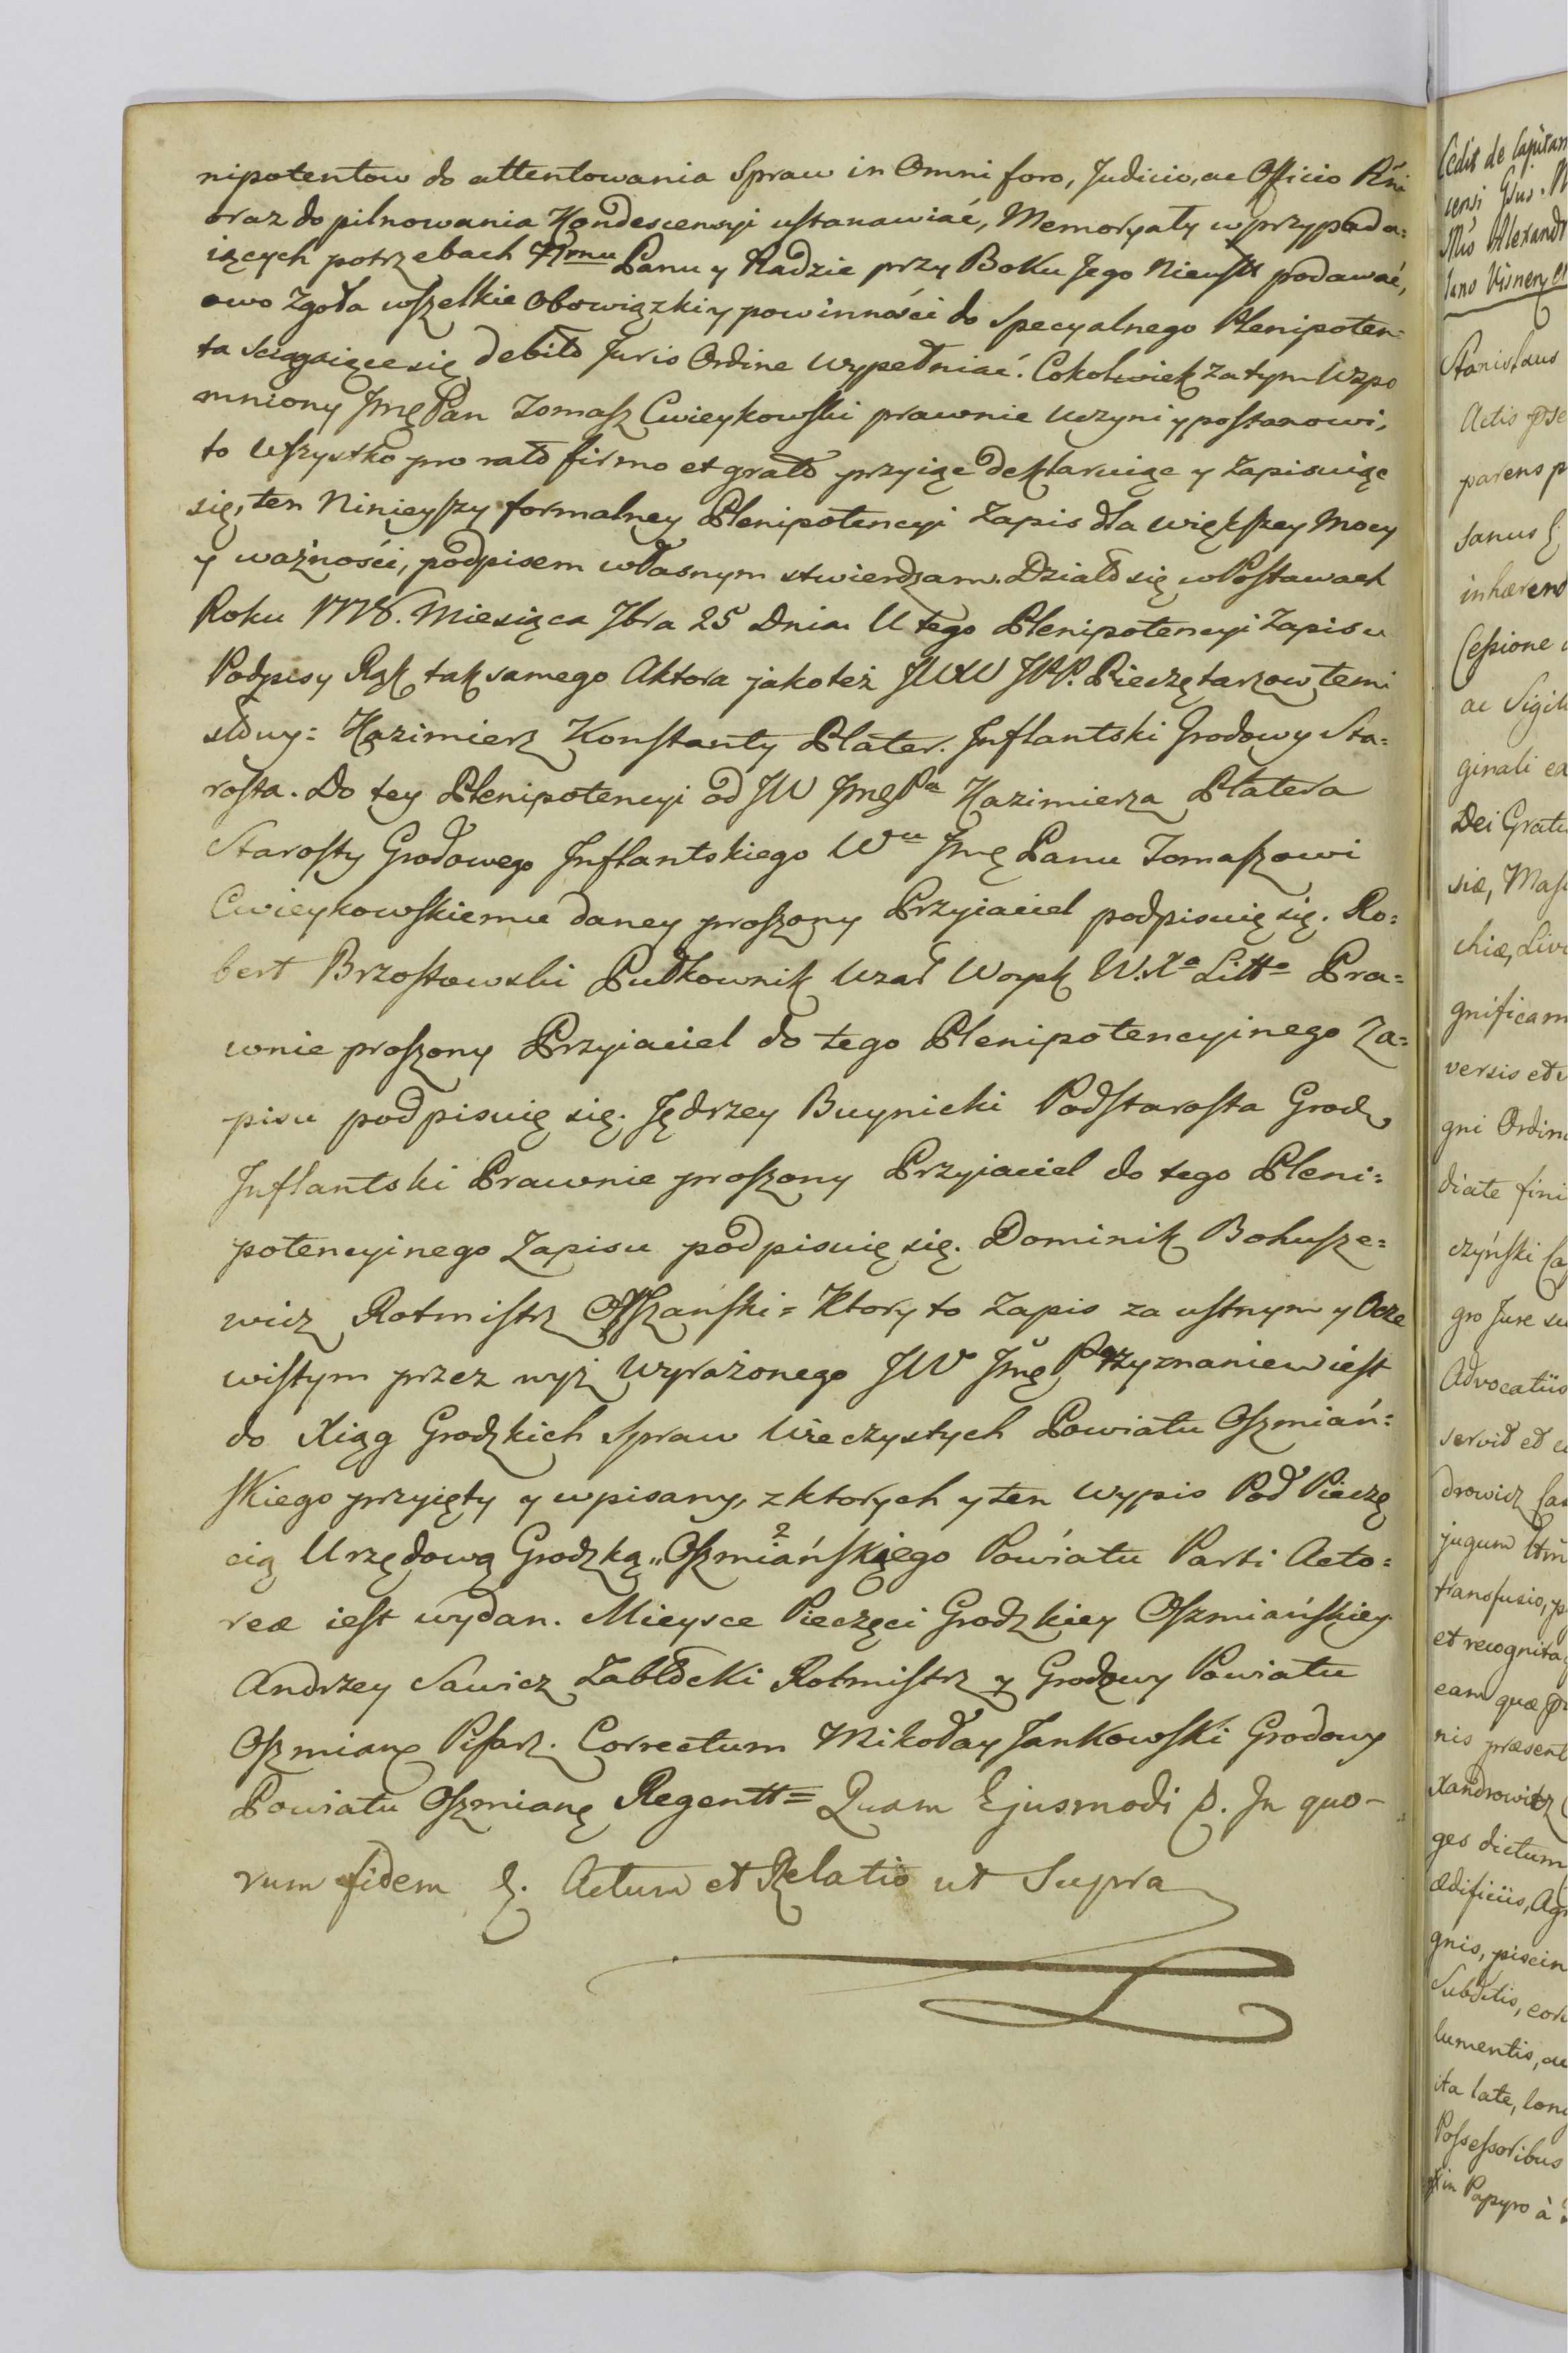 nipotentow do attentowania Spraw in Omni foro, Judicio, ac Officio Rńi
oraz do pilnowania Kondescensyi ustanawiać, Memoryały w przypada=
iących potrzebach Nmu Panu y Radzie przy Boku Jego Nieust podawać,
owo Zgoła wszelkie Obowiązki y powinności do specyalnego Plenipoten=
ta sciągaiące się debito Juris Ordine wypełniać. Cokolwiek zatym Wzpo
mniony Jmę Pan Tomasz Cwieykowski prawnie uczyni y postanowi,
to wszystko pro rato firmo et grato przyiąc deklaruię y Zapisuię
się, ten Ninieyszy formalney Plenipotencyi Zapis dla większey Mocy
y ważności, podpisem własnym stwierdzam. Działo się w Postawach
Roku 1778. Miesiąca 7bra 25 Dnia. U tego Plenipotencyi Zapisu
Podpisy Rąk tak samego Aktora jako też JWW JPP. Pieczętarzow temi
słowy: Kazimierz Konstanty Plater. Inflantski Grodowy Sta=
rosta. Do tey Plenipotencyi od JW JmęPa Kazimierza Platera
Starosty Grodowego Inflantskiego Wu Jmę Panu Tomaszowi
Cwieykowskiemu daney proszony Przyiaciel podpisuię się. Ro=
bert Brzostowski Pułkownik Uzar Woysk W. Xa Litto Pra=
wnie proszony Przyiaciel do tego Plenipotencyinego Za=
pisu podpisuię się. Jędrzey Buynicki Podstarosta Grodz
Inflantski Prawnie proszony Przyiaciel do tego Pleni=
potencyinego Zapisu podpisuię się. Dominik Bohusze=
wicz Rotmistrz Orszański = Ktory to Zapis za ustnym y Ocze
wistym przez wyż wyrażonego JW Jmę Pa zyznaniem iest
do Xiąg Grodzkich Spraw Wieczystych Powiatu Oszmiań=
skiego przyięty y wpisany, z ktorych y ten wypis Pod Pieczę
cią Urzędową Grodzką „Oszmiańskiego Powiatu Parti Acto=
reæ iest wydan. Mieysce Pieczęci Grodzkiey Oszmiańskiey
Andrzey Sawicz Zabłocki Rotmistrz y Grodowy Powiatu
Oszmian Pisarz. Correctum Mikołay Jankowski Grodowy
Powiatu Oszmianę Regentt = Quam Ejusmodi p. In quo-
rum fidem &. Actum et Relatio ut Supra
Cedit de Capitan
censi Gsus. M
Alexandr
Visnery
Stanislaus
Actis pse
parens p
sanus &
inhærend
Cessione
ac Sigil
ginali ea
Dei Grati
siæ, Mas
chiæ, Livo
gnificam
versis et
gni Ordin
diate fini
czyński Ca
gro Jure su
Advocatiis
servit et
drowicz Ca
jugum
transfusio, p
et recognita
eam quæ
nis præsent
xandrowicz
ges dictum
ædificiis, Ag
gnis, piscin
Subditis, eor
lumentis, ac
ita late, lon
Possessoribus
in Papyro à